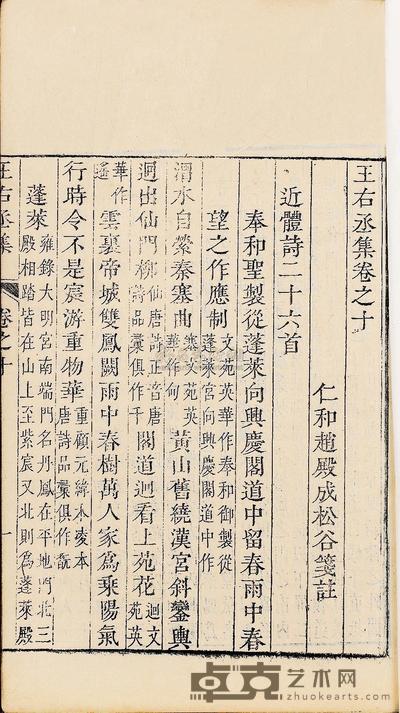 王右丞集卷之十
仁和趙殿成松谷箋註
近體詩二十六首
奉和聖製從蓬萊向興慶閣道中留春雨中春
望之作應制文苑英華作奉和御製從蓬萊宮向興慶閣道中作
渭水自縈秦塞曲塞文苑英華作甸黃山舊繞漢宮斜鑾輿
迥出仙門柳仙唐詩正音唐詩品彙俱作千閣道迴看上苑花迴文苑英
華作遙雲裏帝城雙鳳闕雨中春樹萬人家為乘陽氣
行時令不是宸游重物華重顧元緯本凌本唐詩品彙俱作翫
蓬萊雍錄大明宮南端門名丹鳳在平地門北三殿相踏皆在山上至紫宸又北則為蓬萊殿
王右丞集 卷之十 一
卓克艺术网
zhuokearts.com